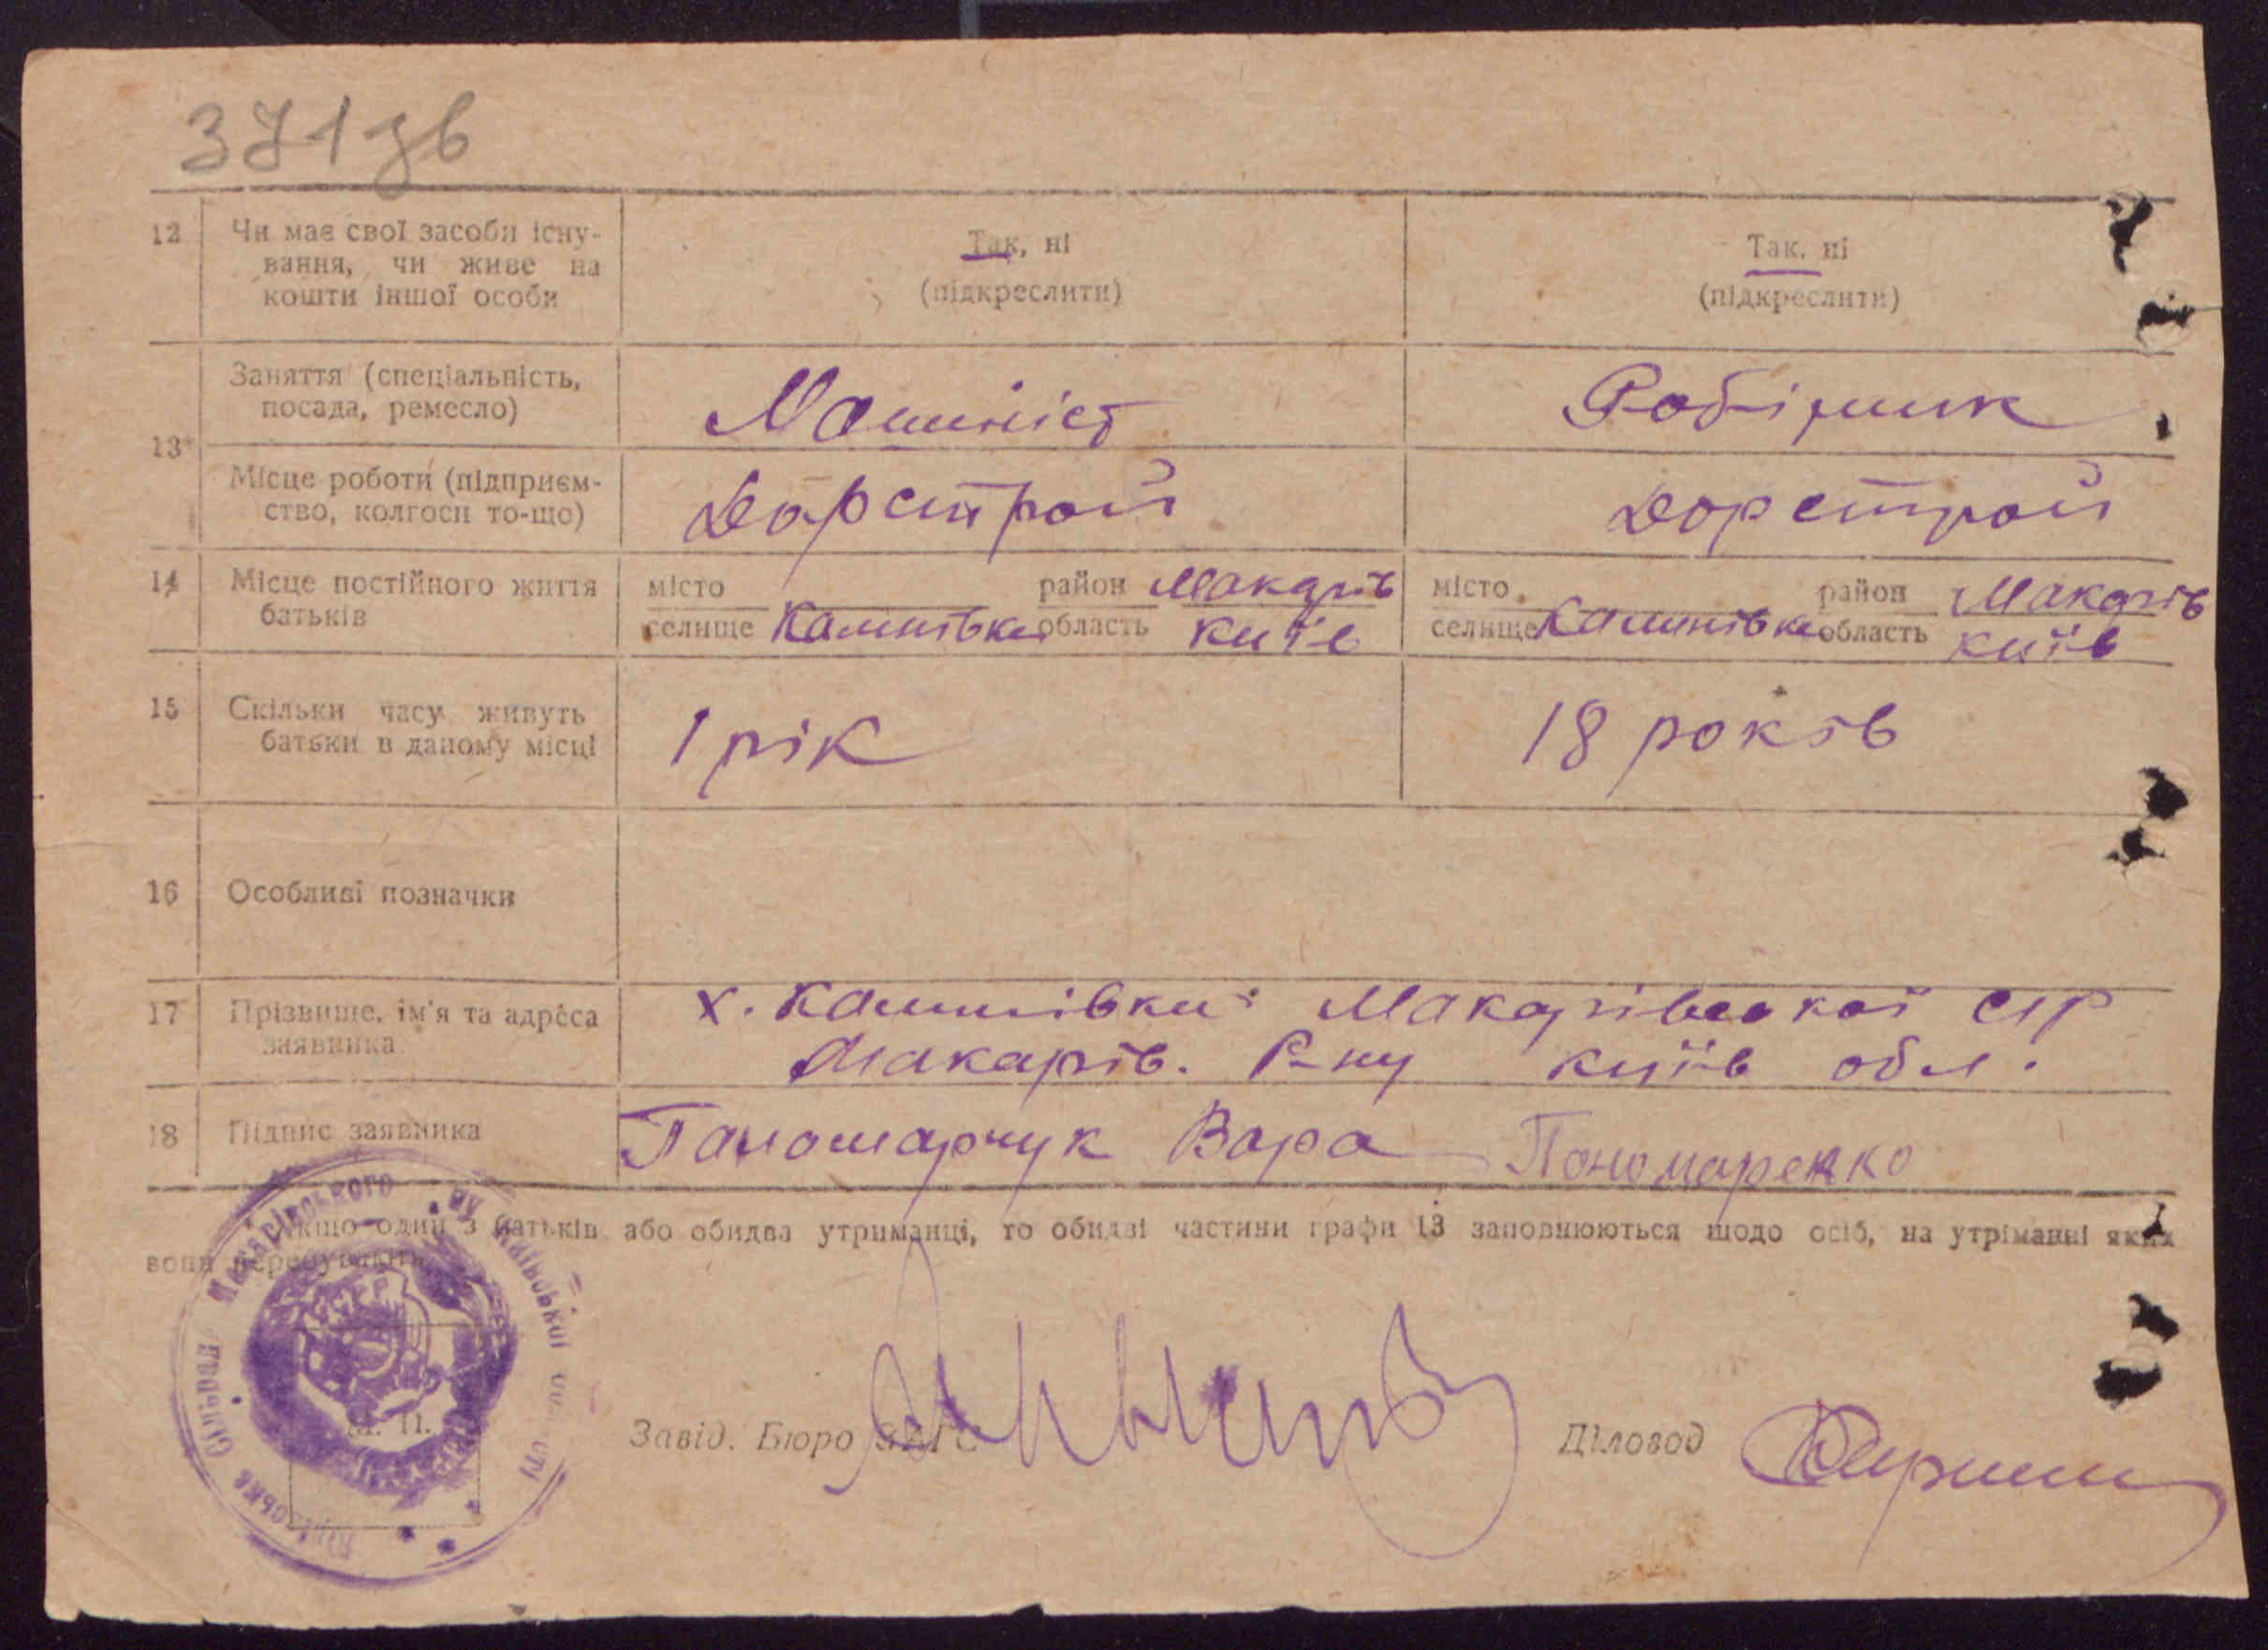 371зв
12 Чи має свої засоби існу- Так, ні Так, ні
вання, чи живе на
кошти іншої особи (підкреслити) (підкреслити)
Заняття (спеціальність, Машиніст Робітник
посада, ремесло)
13*
Місце роботи (підприєм- Дорстрой Дорстрой
ство, колгосп то-що)
14 Місце постійного життя місто район Макарів місто район Макарів
батьків селище Калинівка область Київ селище Калинівка область Київ
15 Скільки часу живуть 1 рік 18 років
батьки в даному місці
16 Особливі позначки
17 Прізвище, ім'я та адреса х. Калинівки Макарівської с/р
заявника Макарів. Р-ну Київ обл.
18 Підпис заявника Пономарчук Вара Пономаренко
Якщо один з батьків або обидва утриманці, то обидві частини графи 13 заповнюються щодо осіб, на утріманні яких
вони перебувають
Макарівського Київської
Сільська
М. П.
Завід. Бюро ЗАГС Діловод